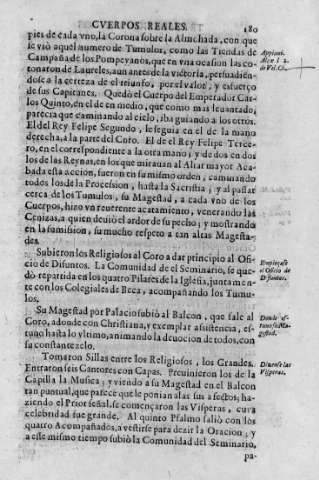 CVERPOS REALES. 180
pies de cada vno, la Corona sobre la Almohada, con que
se viò aquel numero de Tumulos, como las Tiendas de
Campaña de los Pompeyanos, que en vna ocasion las co-
ronaron de Laureles, aun antes de la victoria, persuadien-
dose a la certeza de el triunfo, por el valor, y esfuerço
de sus Capitanes. Quedò el Cuerpo del Emperador Car-
los Quinto, en el de en medio, que como mas leuantado,
parecia que caminando al cielo, iba guiando a los otros.
El del Rey Felipe Segundo, le seguia en el de la mano
derecha, a la parte del Coro. El de el Rey Felipe Terce-
ro, en el correspondiente a la otra mano; y de dos en dos
los de las Reynas, en los que mirauan al Altar mayor. Aca-
bada esta acción, fueron en su mismo orden, caminando
todos los de la Procession, hasta la Sacristia, y al passar
cerca de los Tumulos, su Magestad, a cada vno de los
Cuerpos, hizo vn reuerente acatamiento, venerando las
Cenizas, a quien deuiò el ardor de su pecho; y mostrando
en la sumission, su mucho respeto a tan altas Magesta-
des.
Subieron los Religiosos al Coro a dar principio al Ofi-
cio de Difuntos. La Comunidad de el Seminario, se que-
dò repartida en los quatro Pilares de la Iglesia, juntamen-
te con los Colegiales de Beca, acompañando los Tumu-
los.
Su Magestad por Palacio subiò al Balcon, que sale al
Coro, adonde con Christiana, y exemplar assistencia, es-
tuuo hasta lo vltimo, animando la deuocion de todos, con
su constante zelo.
Tomaron Sillas entre los Religiosos, los Grandes.
Entraron seis Cantores con Capas. Preuinieron los de la
Capilla la Musica; y viendo a su Magestad en el Balcon
tan puntual, que parece que le ponian alas sus afectos, ha-
ziendo el Prior señal, se començaron las Visperas, cuya
celebridad fue grande. Al quinto Psalmo saliò con los
quatro Acompañados, a vestirse para dezir la Oracion; y
a este mismo tiempo subiò la Comunidad del Seminario,
pa-
Appiani.
Empieçase
el Oficio de
Difuntos.
Donde es-
tuuo su Ma-
gestad.
Dizense las
Visperas.